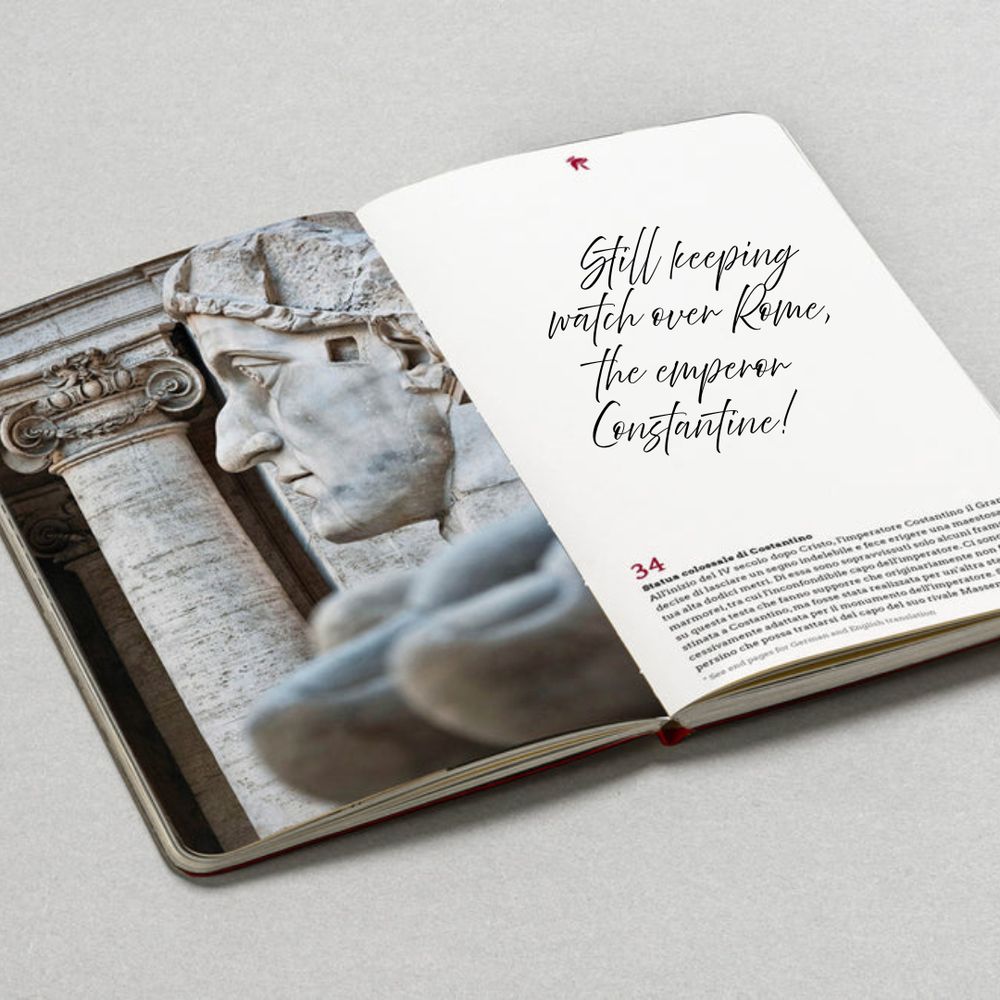 Still keeping
watch over Rome,
the emperor
Constantine!
34
Statua colossale di Costantino
All'inizio del IV secolo dopo Cristo, l'imperatore Costantino il Gran
decise di lasciare un segno indelebile e fece erigere una maestosa
tua alta dodici metri. Di essa sono sopravvissuti solo alcuni fram
marmorei, tra cui l'inconfondibile capo dell'imperatore. Ci son
su questa testa che fanno supporre che originariamente non
stinata a Costantino, ma fosse stata realizzata per un'altra sta
cessivamente adattata per il monumento dell'imperatore.
persino che possa trattarsi del capo del suo rivale Mass
* See end pages for German and English translation